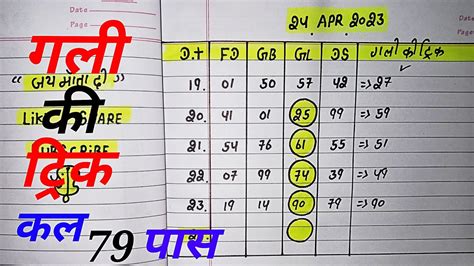 Date
Page
24 APR 2023
गली
की
ट्रिक
कल 79 पास
"जय माता दी"
LIKE SHARE
SUBSCRIBE
D.T FD GB GL DS गली की ट्रिक
19. 01 50 57 42 ⇒ 27
20. 41 01 25 99 ⇒ 59
21. 54 76 61 55 ⇒ 51
22. 07 99 74 39 ⇒ 49
23. 19 14 90 79 ⇒ 90